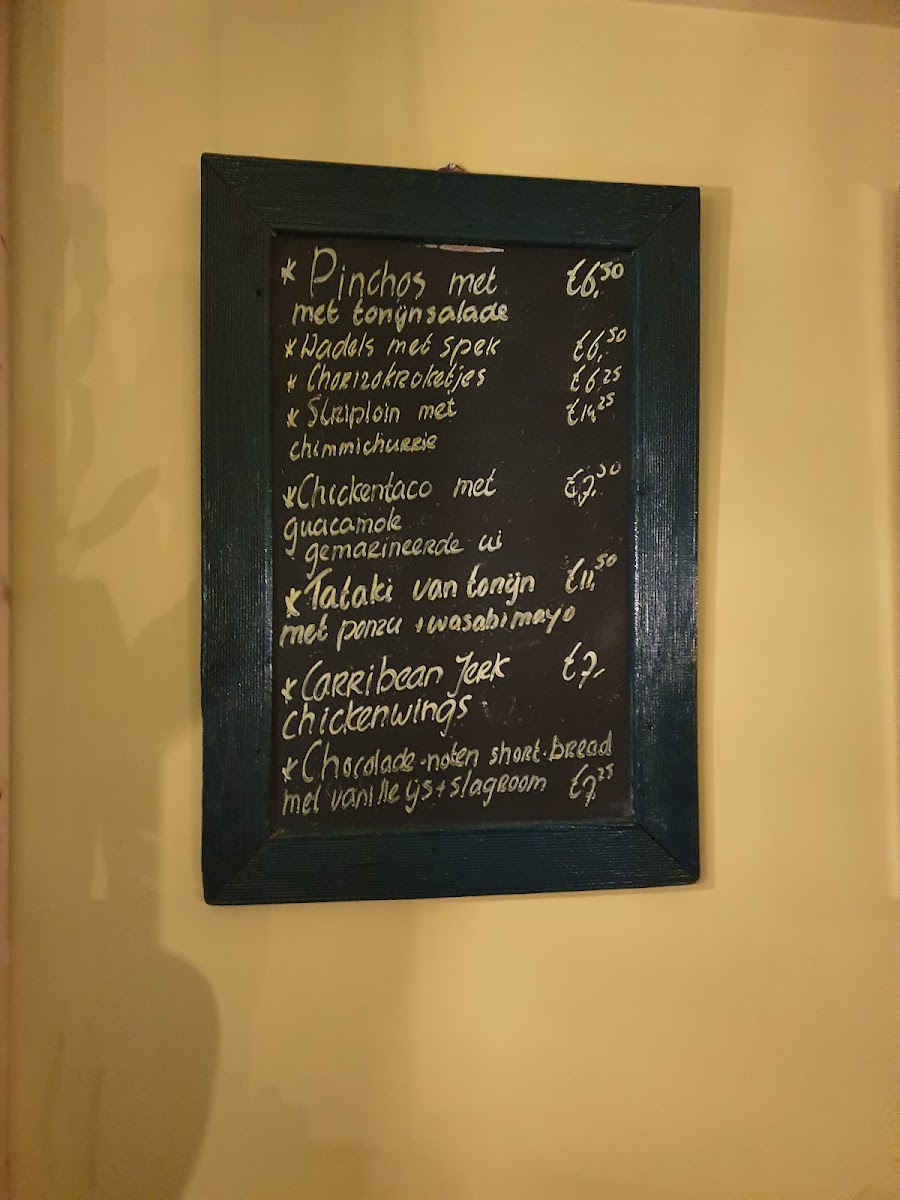 * Pinchos met €6,50
met tonijnsalade
* Dadels met spek €6,50
* Chorizokroketjes €6,25
* Striploin met €14,25
chimmichurrie
* Chickentaco met €7,50
guacamole
gemarineerde ui
* Tataki van tonijn €11,50
met ponzu + wasabi mayo
* Carribean Jerk €7,-
chickenwings
* Chocolade-noten short-bread
met vanille ijs + slagroom €7,25